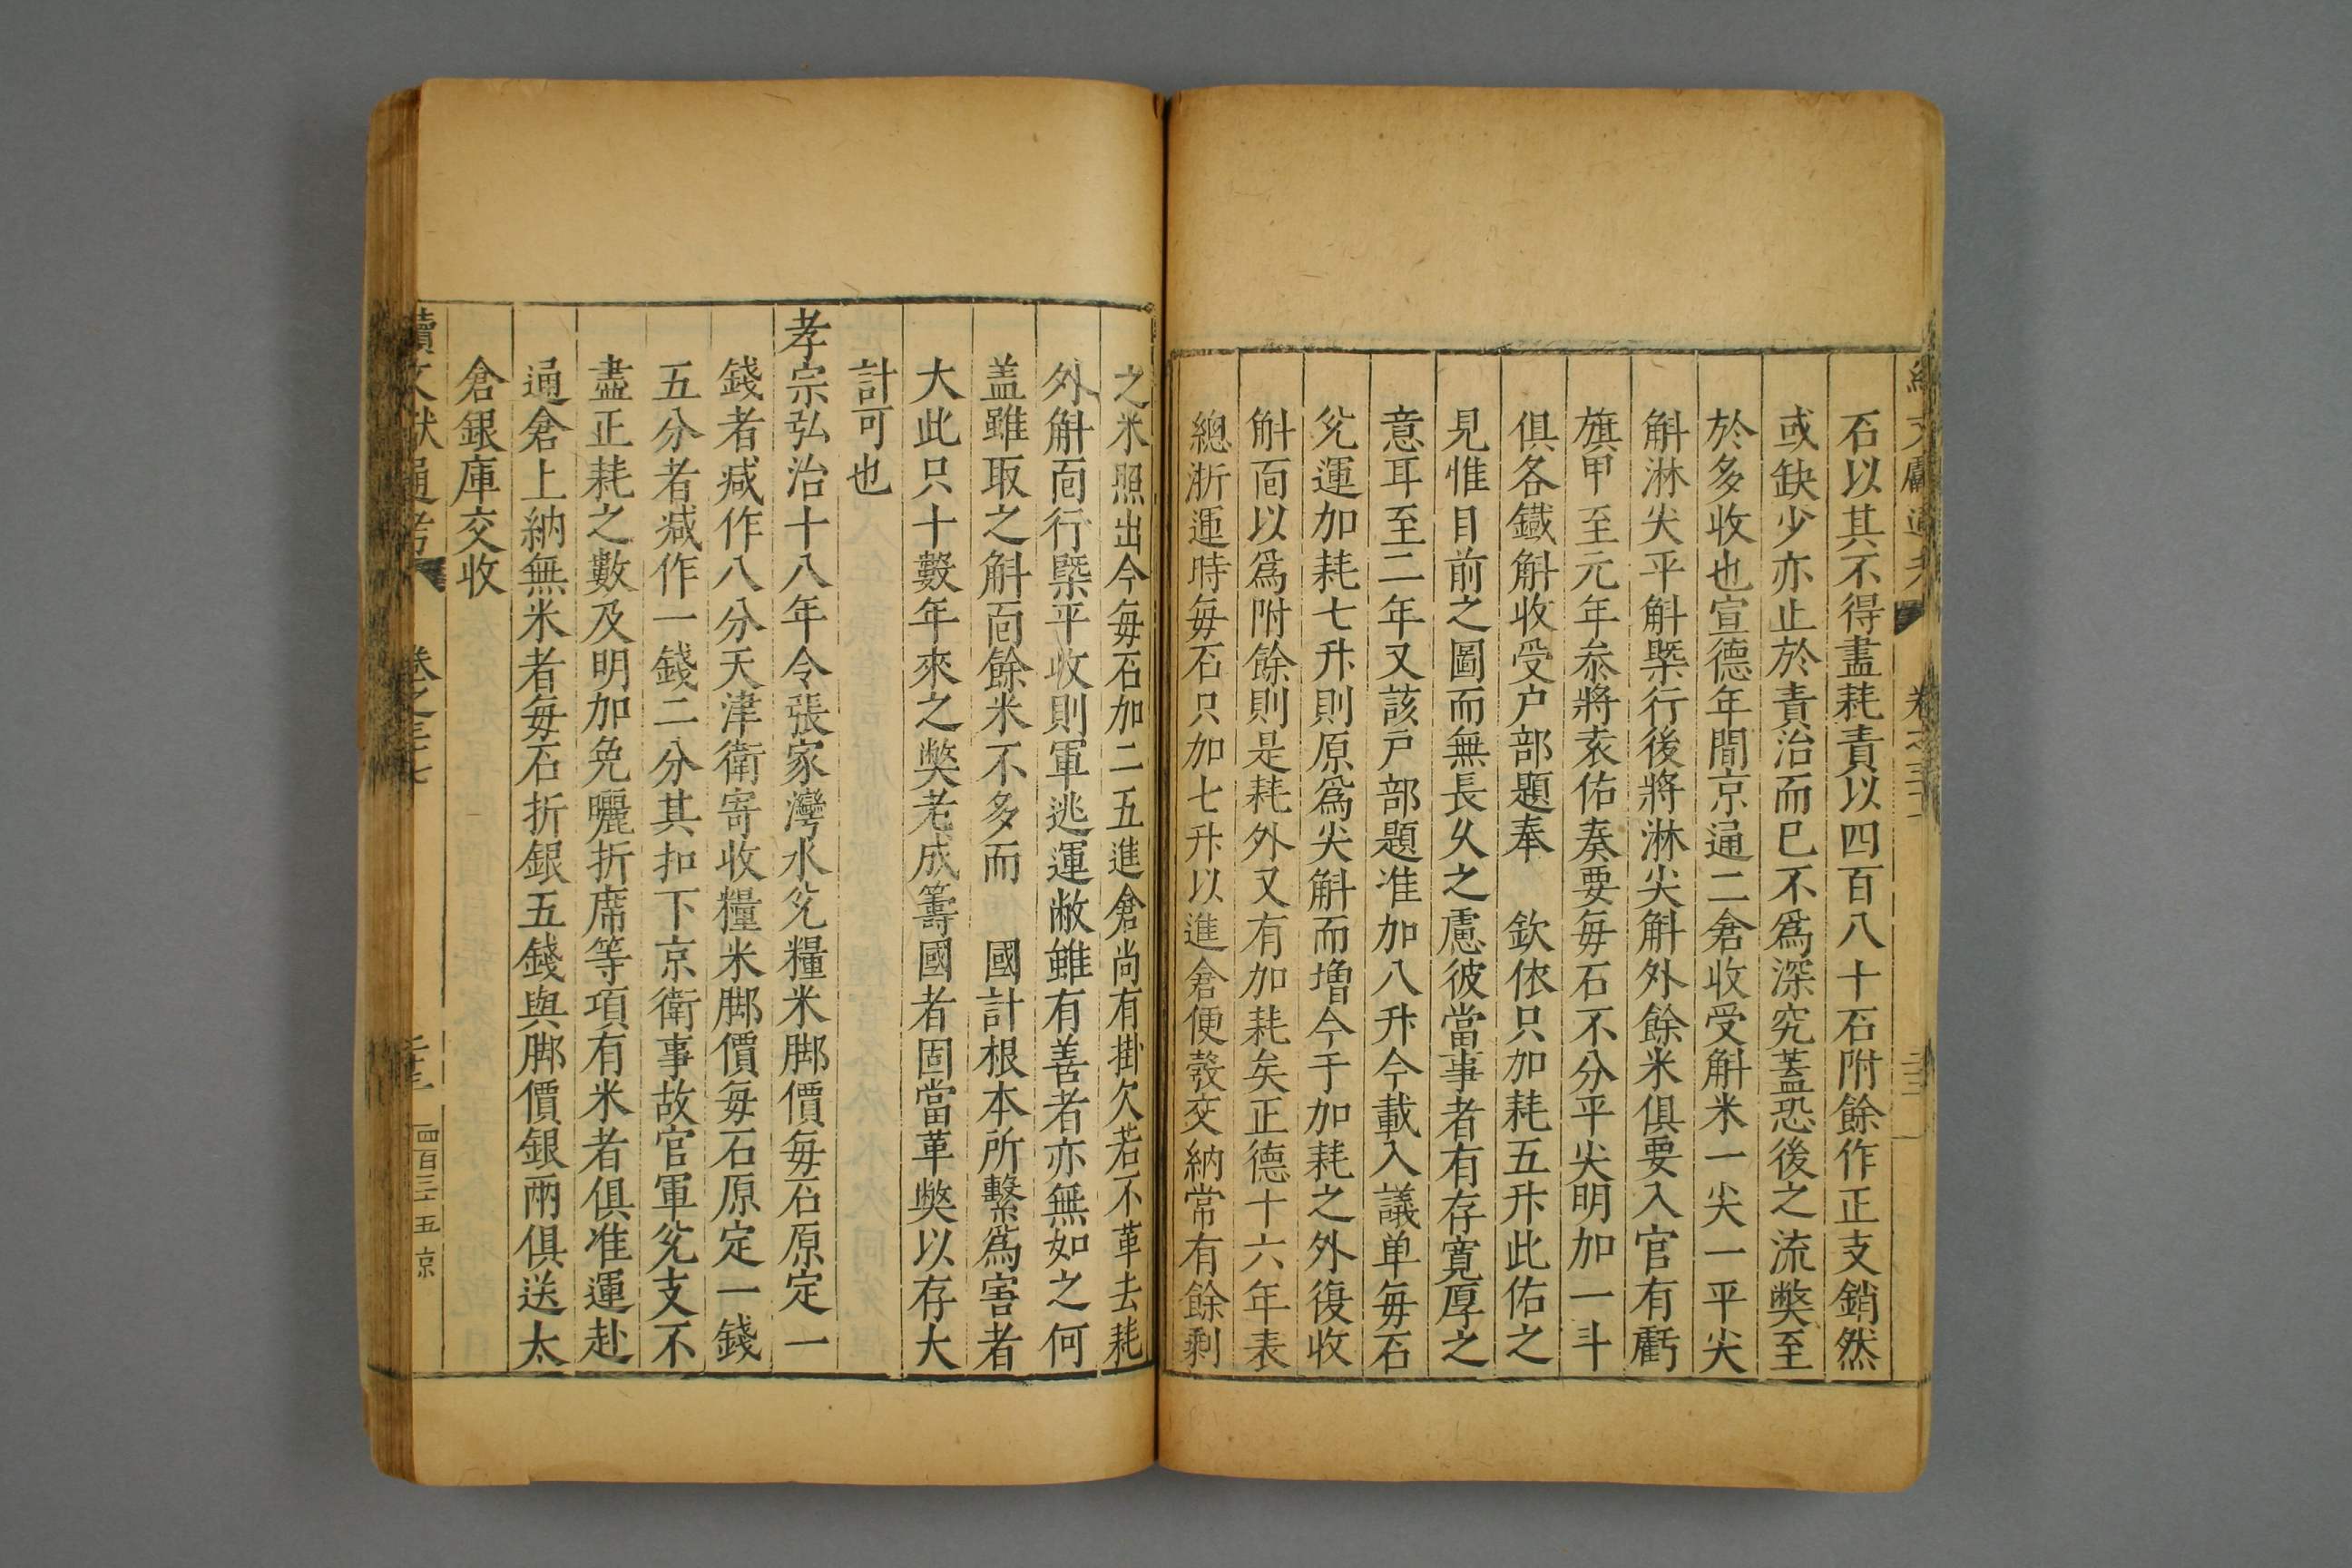 石以其不得盡耗責以四百八十石附餘作正支銷然
或缺少亦止於責治而已不爲深究蓋恐後之流獘至
於多收也宣德年間京通二倉收受斛米一尖一平尖
斛淋尖平斛槩行後將淋尖斛外餘米俱要入官有虧
旗甲至元年叅將袁佑奏要每石不分平尖明加一斗
俱各鐵斛收受户部題奉 欽依只加耗五升此佑之
見惟目前之圖而無長久之慮彼當事者有存寛厚之
意耳至二年又該戸部題准加八升今載入議单每石
兊運加耗七升則原爲尖斛而增今于加耗之外復收
斛面以爲附餘則是耗外又有加耗矣正德十六年表
總浙運時每石只加七升以進倉便彀交納常有餘剩
之米照出今每石加二五進倉尚有掛欠若不革去耗
外斛面行槩平收則軍逃運敝雖有善者亦無如之何
盖雖取之斛面餘米不多而 國計根本所繫爲害者
大此只十數年來之獘老成籌國者固當革獘以存大
計可也
孝宗弘治十八年令張家灣水兊糧米脚價每石原定一
錢者减作八分天津衛寄收糧米脚價每石原定一錢
五分者减作一錢二分其扣下京衛事故官軍兊支不
盡正耗之數及明加免曬折席等項有米者俱准運赴
通倉上納無米者每石折銀五錢與脚價銀兩俱送太
倉銀庫交收
續文獻通考 卷之三十七 四百三五 京